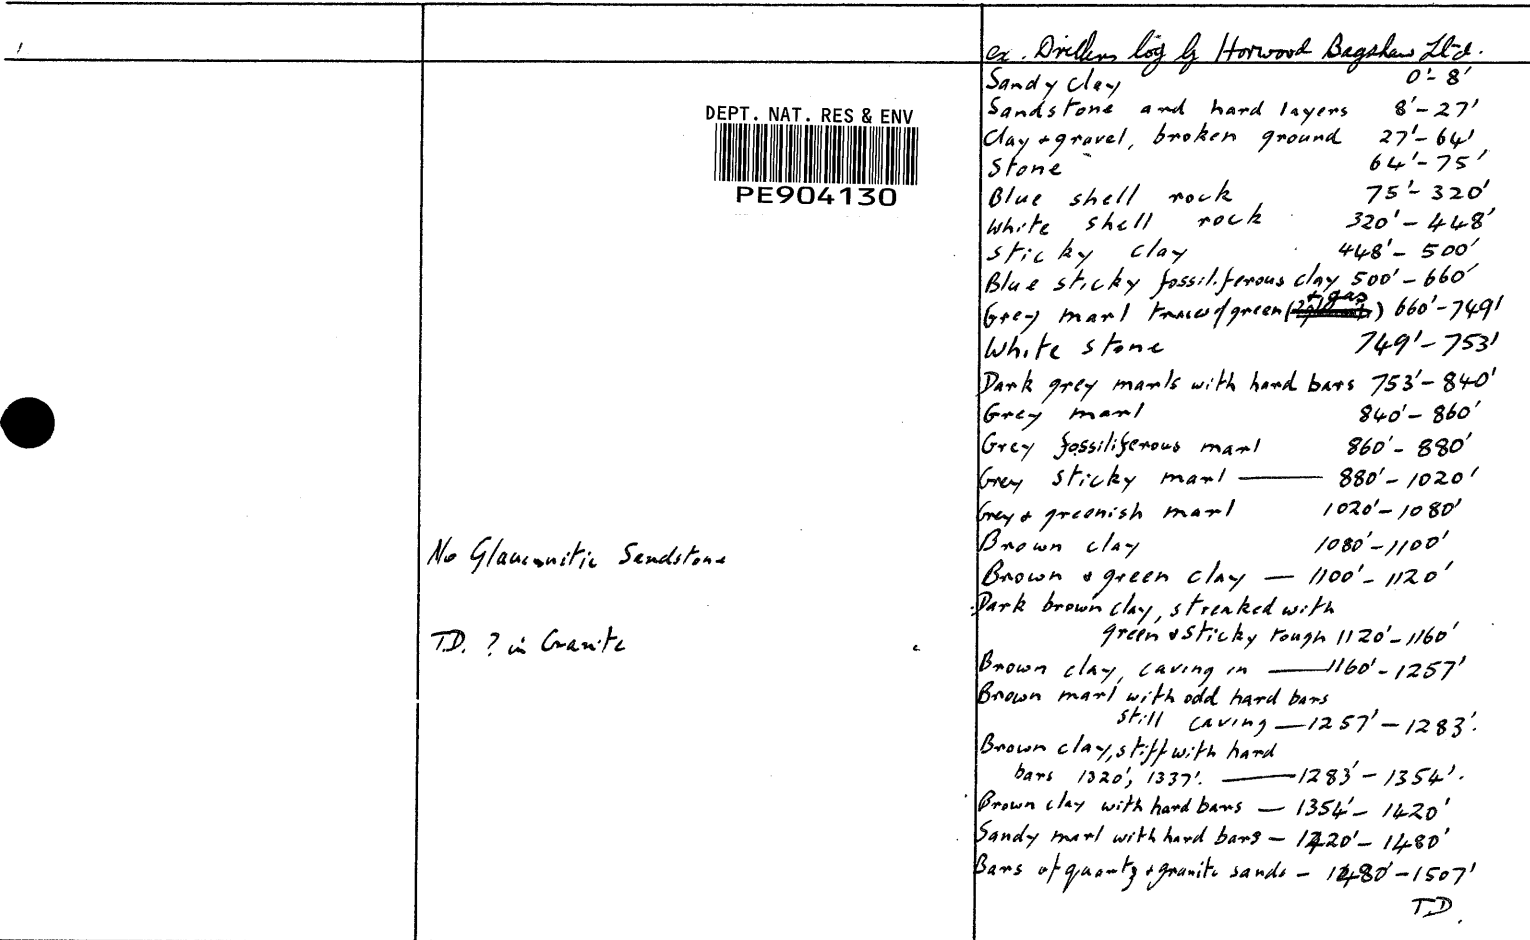 ex. Drillers log by Horwood Bagshaw Ltd.
Sandy clay 0'-8'
Sandstone and hard layers 8'-27'
Clay + gravel, broken ground 27'-64'
Stone 64'-75'
Blue shell rock 75'-320'
White shell rock 320'-448'
Sticky clay 448'-500'
Blue sticky fossiliferous clay 500'-660'
+ gas
Grey marl traces of green ( ) 660'-749'
White stone 749'-753'
Dark grey marls with hard bars 753'-840'
Grey marl 840'-860'
Grey fossiliferous marl 860'-880'
Grey sticky marl — 880'-1020'
Grey + greenish marl 1020'-1080'
Brown clay 1080'-1100'
Brown + green clay — 1100'-1120'
Dark brown clay, streaked with
green + sticky tough 1120'-1160'
Brown clay, caving in — 1160'-1257'
Brown marl with odd hard bars
still caving — 1257'-1283'.
Brown clay, stiff with hard
bars 1320', 1337'. — 1283'-1354'.
Brown clay with hard bars — 1354'-1420'
Sandy marl with hard bars — 1420'-1480'
Bars of quartz + granite sands — 1480'-1507'
T.D.
DEPT. NAT. RES & ENV
PE904130
No Glauconitic Sandstone
T.D. ? in Granite